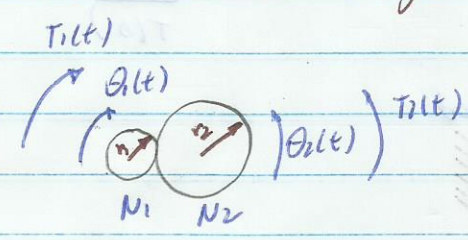 T₁(t)
θ₁(t)
r₁ r₂ θ₂(t) T₂(t)
N₁ N₂